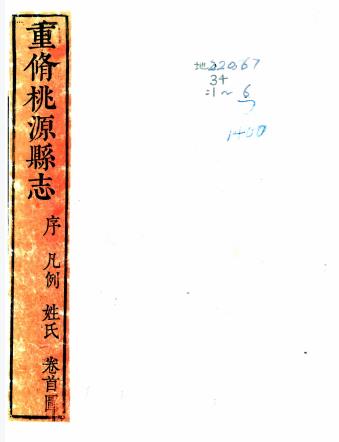 重脩桃源縣志
序 凡例 姓氏 卷首圖
地22067
34
:1~6
7
1400